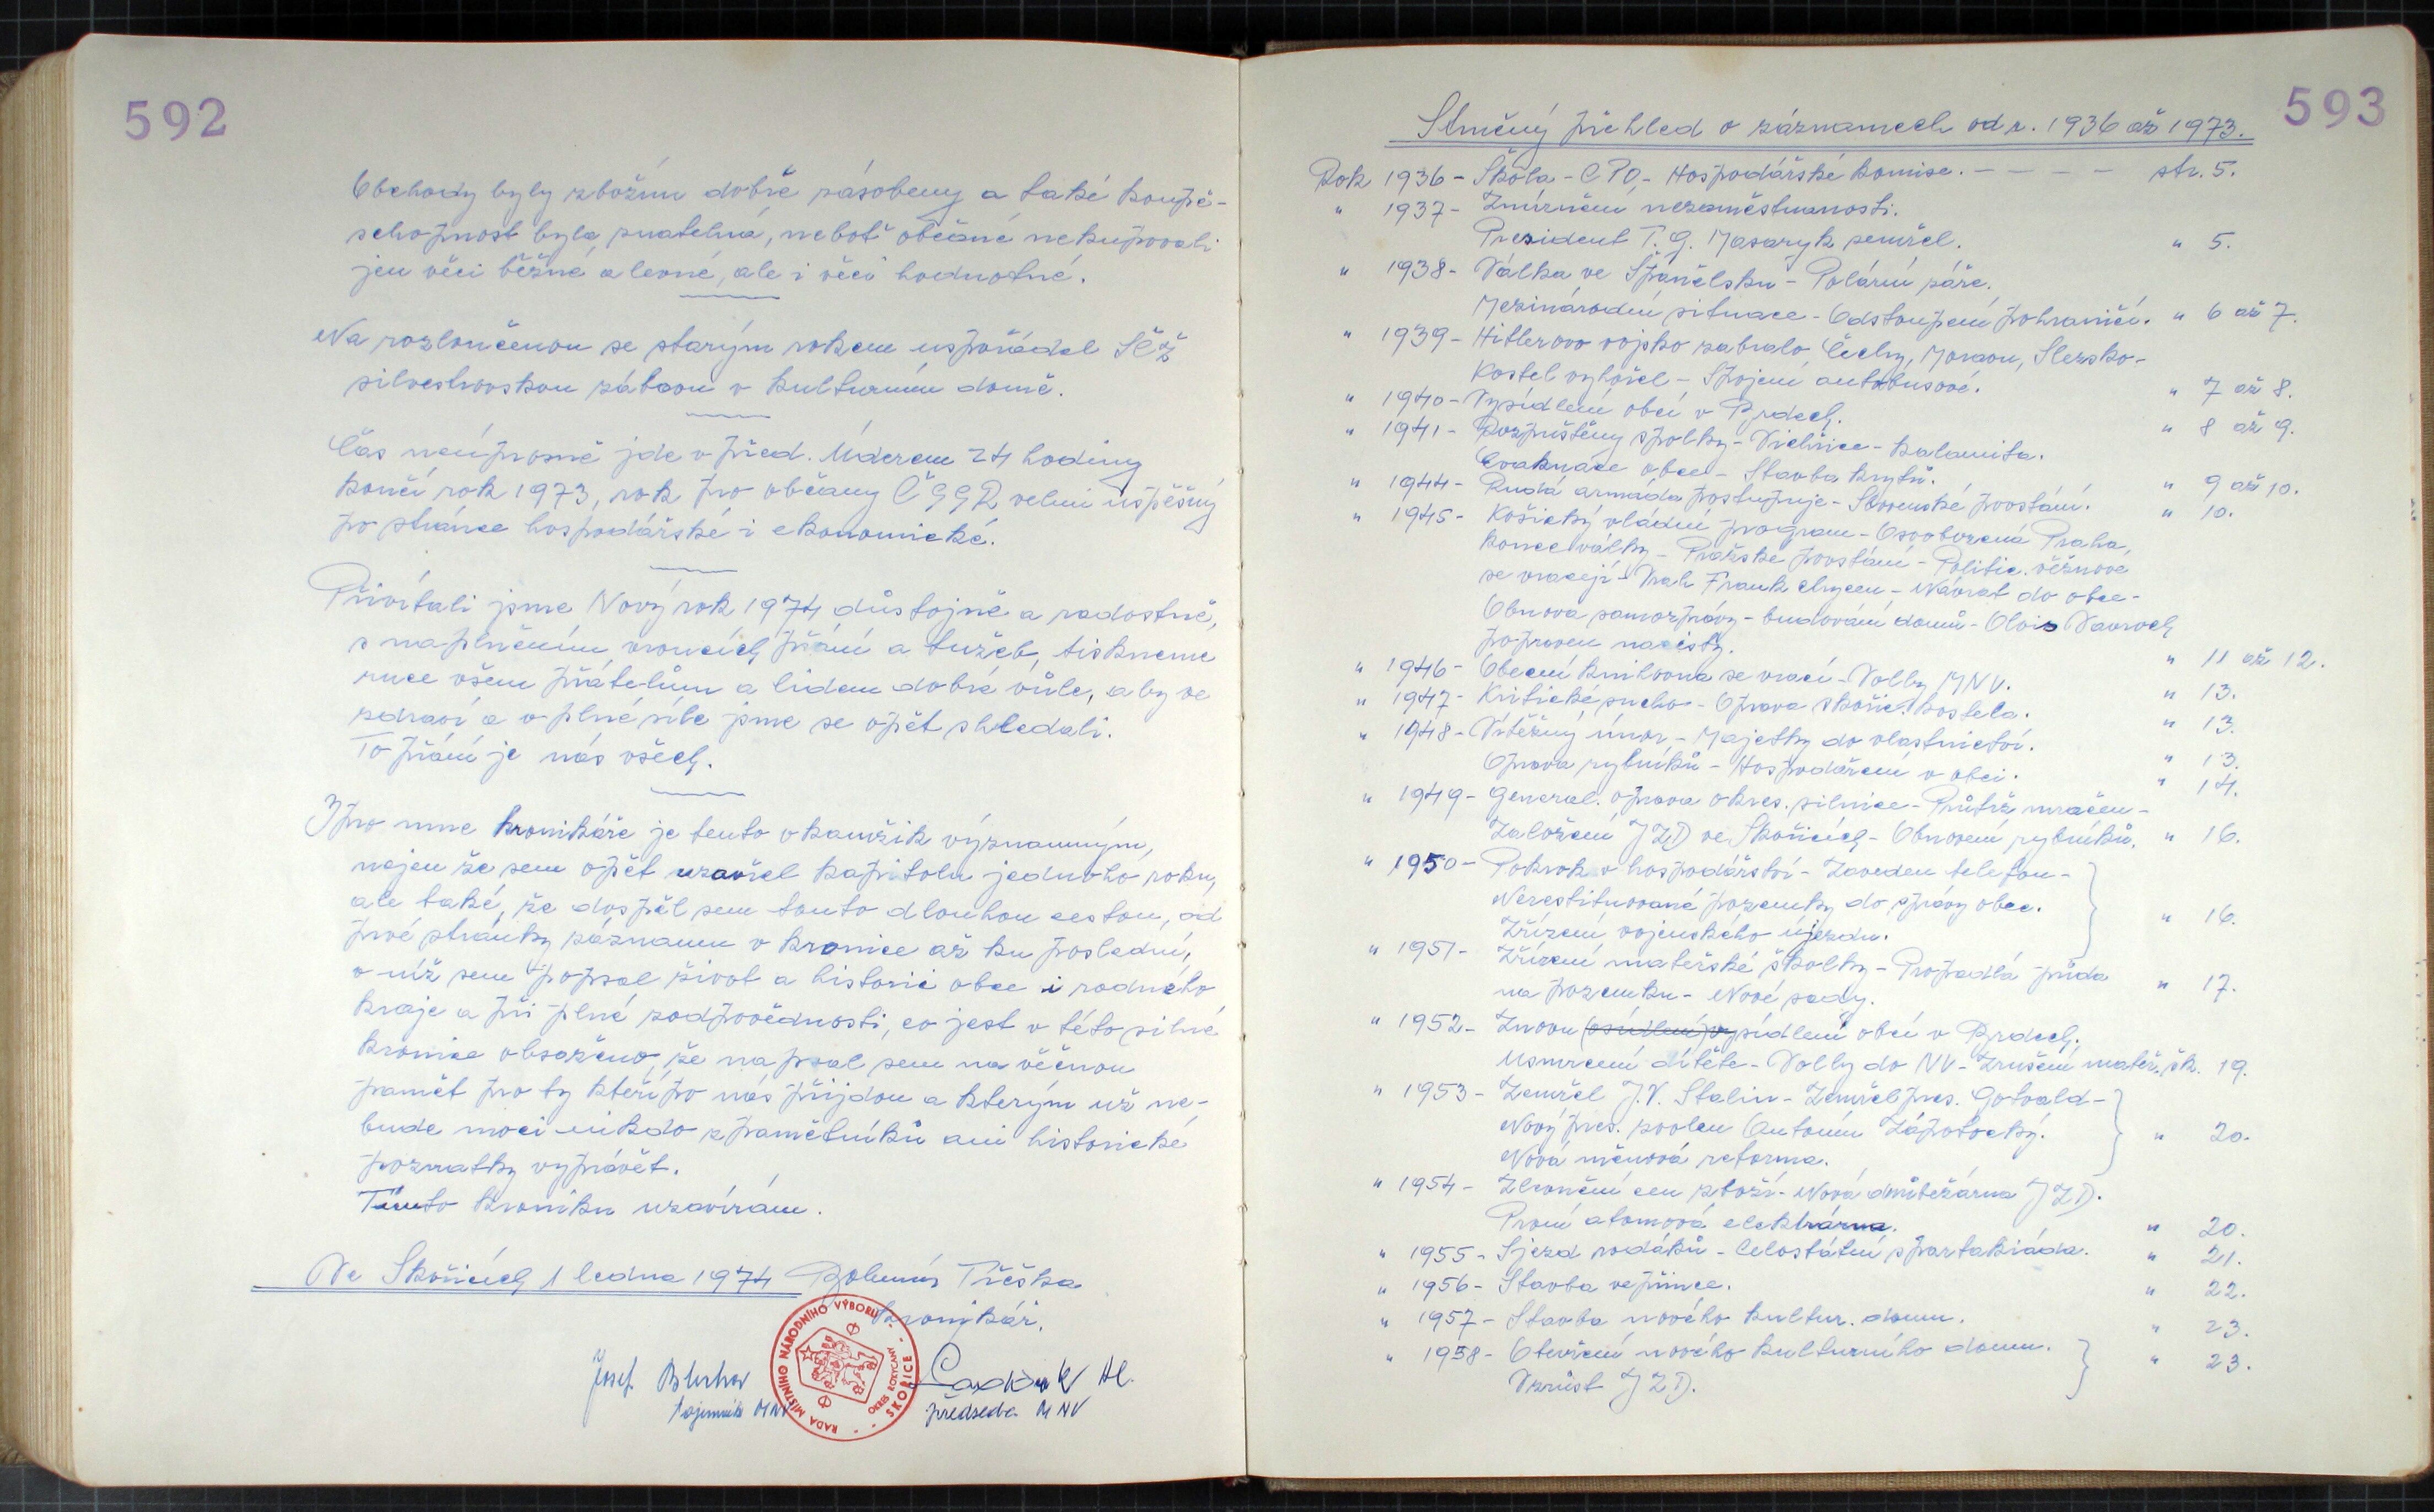 592
Obchody byly zbožím dobře zásobeny a také koupě-
schopnost byla znatelná, neboť občané nekupovali
jen věci běžné a levné, ale i věci hodnotné.
Na rozloučenou se starým rokem uspořádal SČŽ
silvestrovskou zábavu v kulturním domě.
Čas neúprosně jde v před. Úderem 24 hodiny
končí rok 1973, rok pro občany ČSSR velmi úspěšný
po stránce hospodářské i ekonomické.
Přivítali jsme Nový rok 1974 důstojně a radostně,
s naplněním vroucích přání a tužeb, tiskneme
ruce všem přátelům a lidem dobré vůle, aby ve
zdraví a v plné síle jsme se opět shledali.
To přání je nás všech.
I pro mne kronikáře je tento okamžik významným,
nejen že sem opět uzavřel kapitolu jednoho roku,
ale také, že dospěl sem touto dlouhou cestou, od
prvé stránky záznamu v kronice až ku poslední,
v níž sem popsal život a historii obce i rodného
kraje a při plné zodpovědnosti, co jest v této silné
kronice obsaženo, že napsal sem na věčnou
paměť pro ty kteří po nás přijdou a kterým už ne-
bude moci nikdo z pamětníků ani historické
poznatky vyprávět.
Tímto kroniku uzavírám.
Ve Skořicích 1 ledna 1974 Bohumír Třeška
kronikář.
Josef
Tajemník MNV
předseda MNV
RADA MÍSTNÍHO NÁRODNÍHO VÝBORU
SKOŘICE
OKRES ROKYCANY
593
Stručný přehled o záznamech od r. 1936 až 1973.
Rok 1936 - Škola - CPO, - Hospodářské komise. - - - - str. 5.
" 1937 - Zmírnění nezaměstnanosti.
President T. G. Masaryk zemřel. " 5.
" 1938 - Válka ve Španělsku - Polární záře.
Mezinárodní situace - Odstoupení pohraničí. " 6 až 7.
" 1939 - Hitlerovo vojsko zabralo Čechy, Moravu, Slezsko -
Kostel vyhořel - Spojení autobusové. " 7 až 8.
" 1940 - Vysídlení obcí v Brdech. " 8 až 9.
" 1941 - Rozpuštěny spolky - Vichřice - kalamita.
Evakuace obce - Stavba krytů. " 9 až 10.
" 1944 - Rudá armáda postupuje - Slovenské povstání. " 10.
" 1945 - Košický vládní program - Osvobozená Praha,
konec války - Pražské povstání - Politic. věžňové
se vracejí - Vrah Frank chycen - Návrat do obce -
Obnova samosprávy - budování domů - Alois Vavroch
popraven nacisty. " 11 až 12.
" 1946 - Obecní knihovna se vrací - Volby MNV. " 13.
" 1947 - Kritické sucho - Oprava skořic. kostela. " 13.
" 1948 - Vítězný únor - Majetky do vlastnictví. " 13.
Oprava rybníků - Hospodaření v obci. " 14.
" 1949 - General. oprava okres. silnice - Průtrž mračen -
Založení JZD ve Skořicích - Obnovení rybníků. " 16.
" 1950 - Pokrok v hospodářství - Zaveden telefon -
Nerestituované pozemky do správy obce.
Zřízení vojenského újezdu. " 16.
" 1951 - Zřízení mateřské školky - Propadlá půda
na pozemku - Nové sady. " 17.
" 1952 - Znovu (osídlení) vysídlení obcí v Brdech.
Usmrcení dítěte - Volby do NV - Zrušení mateř. šk. 19.
" 1953 - Zemřel J. V. Stalin - Zemřel pres. Gotvald -
Nový pres. zvolen Antonín Zápotocký.
Nová měnová reforma. " 20.
" 1954 - Zlevnění cen zboží - Nová drůbežárna JZD.
První atomová elektrárna. " 20.
" 1955 - Sjezd rodáků - Celostátní spartakiáda. " 21.
" 1956 - Stavba vepřince. " 22.
" 1957 - Stavba nového kultur. domu. " 23.
" 1958 - Otevření nového kulturního domu. " 23.
Vzrůst JZD.